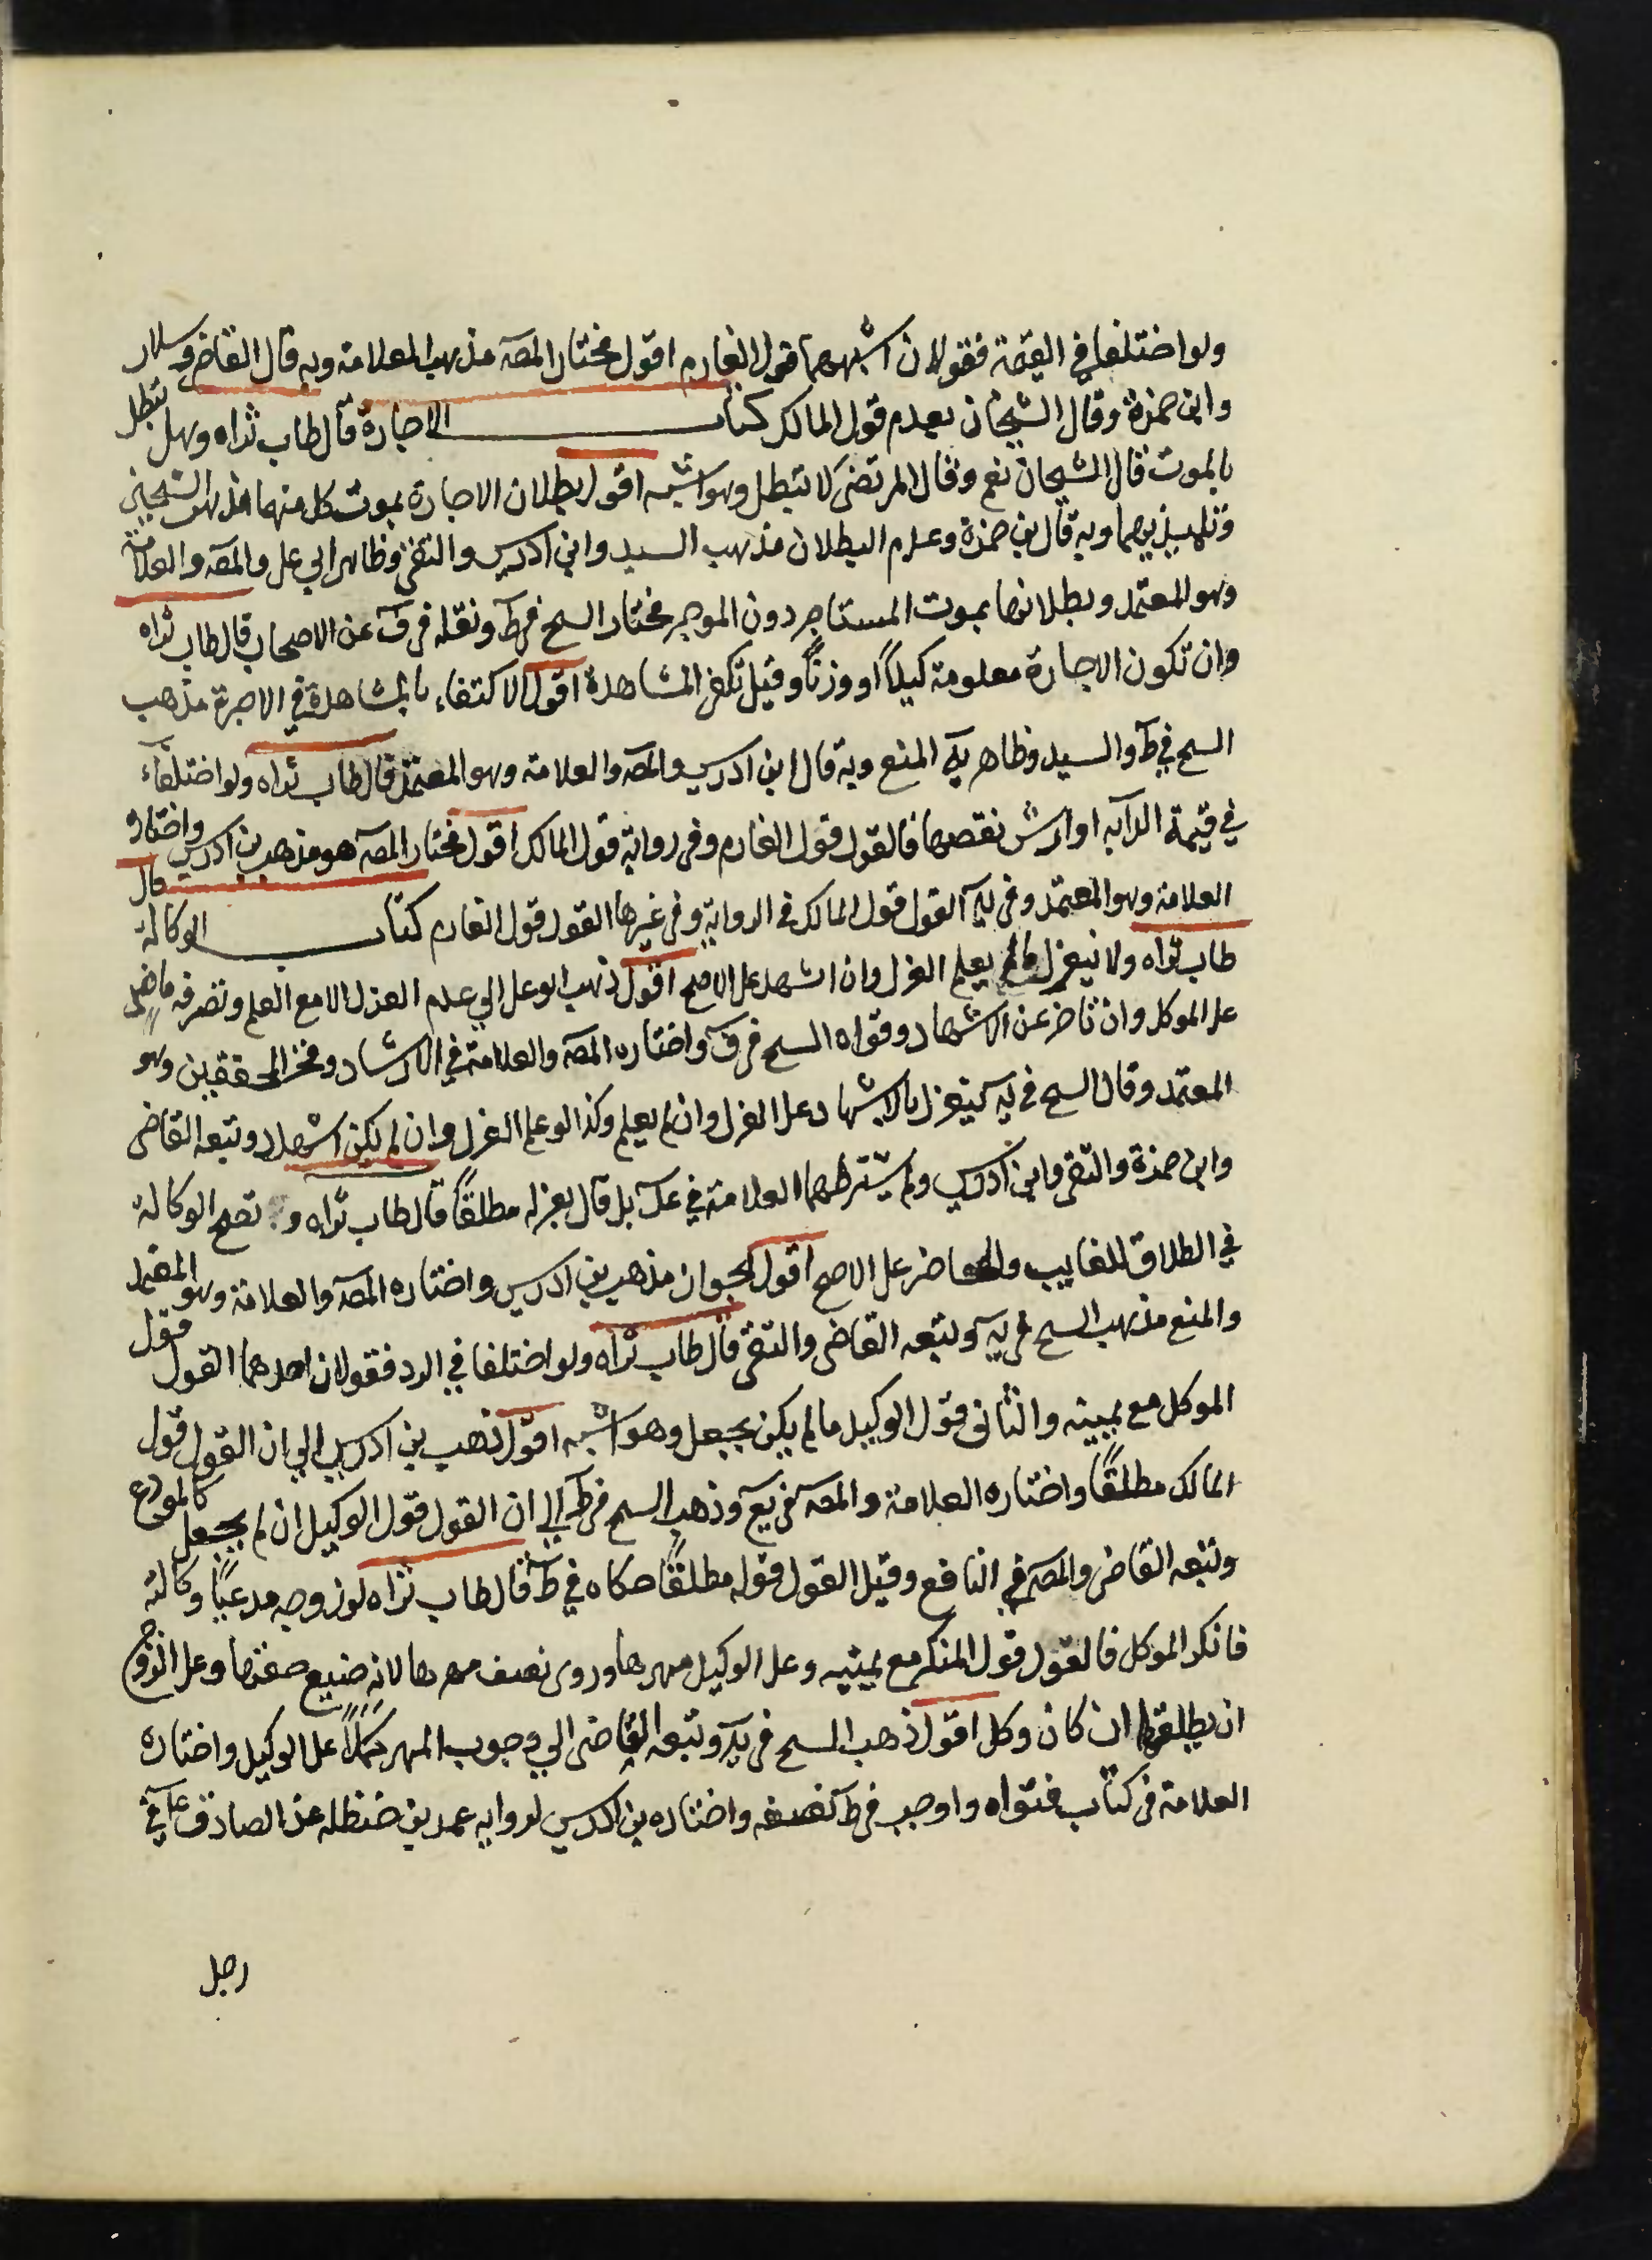 ولو اختلفا في القيمة فقولان اشبههما قول الغارم اقول مختار المصه مذهب العلامة وبه قال القاضي وسلار
وابن حمزة وقال الشيخان يقدم قول المالك كتاب الاجارة قال طاب ثراه وهل تبطل
بالموت قال الشيخان نعم وقال المرتضى لا تبطل وهو اشبه اقول بطلان الاجارة بموت كل منهما مذهب الشيخين
وتلميذيهما وبه قال بن حمزة وعدم البطلان مذهب السيد وابن ادريس والتقي وظاهر ابي علي والمصه والعلامة
وهو المعتمد وبطلانها بموت المستاجر دون الموجر مختار الشيخ في ط ونقله في ف عن الاصحاب قال طاب ثراه
وان تكون الاجارة معلومة كيلاً او وزناً وقيل تكفي المشاهدة اقول الاكتفاء بالمشاهدة في الاجرة مذهب
الشيخ في ط والسيد وظاهر يه المنع وبه قال ابن ادريس والمصه والعلامة وهو المعتمد قال طاب ثراه ولو اختلفا
في قيمة الدابه او ارش نقصها فالقول قول الغارم وفي رواية قول المالك اقول مختار المصه هو مذهب بن ادريس واختاره
العلامة وهو المعتمد وفي يه القول قول المالك في الدوابة وفي غيرها القول قول الغارم كتاب الوكالة قال
طاب ثراه ولا ينعزل ما لم يعلم العزل وان اشهد على الاصح اقول ذهب ابو علي الي عدم العزل الا مع العلم وتصرفه ماضي
على الموكل وان تاخر عن الاشهاد وقواه الشيخ في ف واختاره المصه والعلامة في الارشاد وفخر المحققين وهو
المعتمد وقال الشيخ في يه ينعزل بالاشهاد على العزل وان لم يعلم وكذا لو علم العزل وان لم يكن اشهاد وتبعه القاضي
وابن حمزة والتقي وابن ادريس ولم يشترطهما العلامة في عد بل قال بعزله مطلقاً قال طاب ثراه و تصح الوكالة
في الطلاق للغايب والحاضر على الاصح اقول الجواز مذهب بن ادريس واختاره المصه والعلامة وهو المعتمد
والمنع مذهب الشيخ في يه وتبعه القاضي والتقي قال طاب ثراه ولو اختلفا في الرد فقولان احدهما القول قول
الموكل مع يمينه والثاني قول الوكيل ما لم يكن بجعل وهو اشبه اقول ذهب بن ادريس الي ان القول قول
المالك مطلقاً واختاره العلامة والمصه في يع وذهب الشيخ في ط الي ان القول قول الوكيل ان لم بجعل كالمودع
وتبعه القاضي والمصه في النافع وقيل القول قوله مطلقاً حكاه في ط قال طاب ثراه لو زوجه مدعياً وكالة
فانكر الموكل فالقول قول المنكر مع يمينه وعلى الوكيل مهرها وروى نصف مهرها لانه ضيع حقها وعلى الزوج
ان يطلقها ان كان وكل اقول ذهب الشيخ في يه وتبعه القاضي الي وجوب المهر كملاً على الوكيل واختاره
العلامة في كتاب فتواه واوجب في ط نصفه واختاره بن ادريس لروايه عمر بن حنظله عن الصادق ع في
رجل